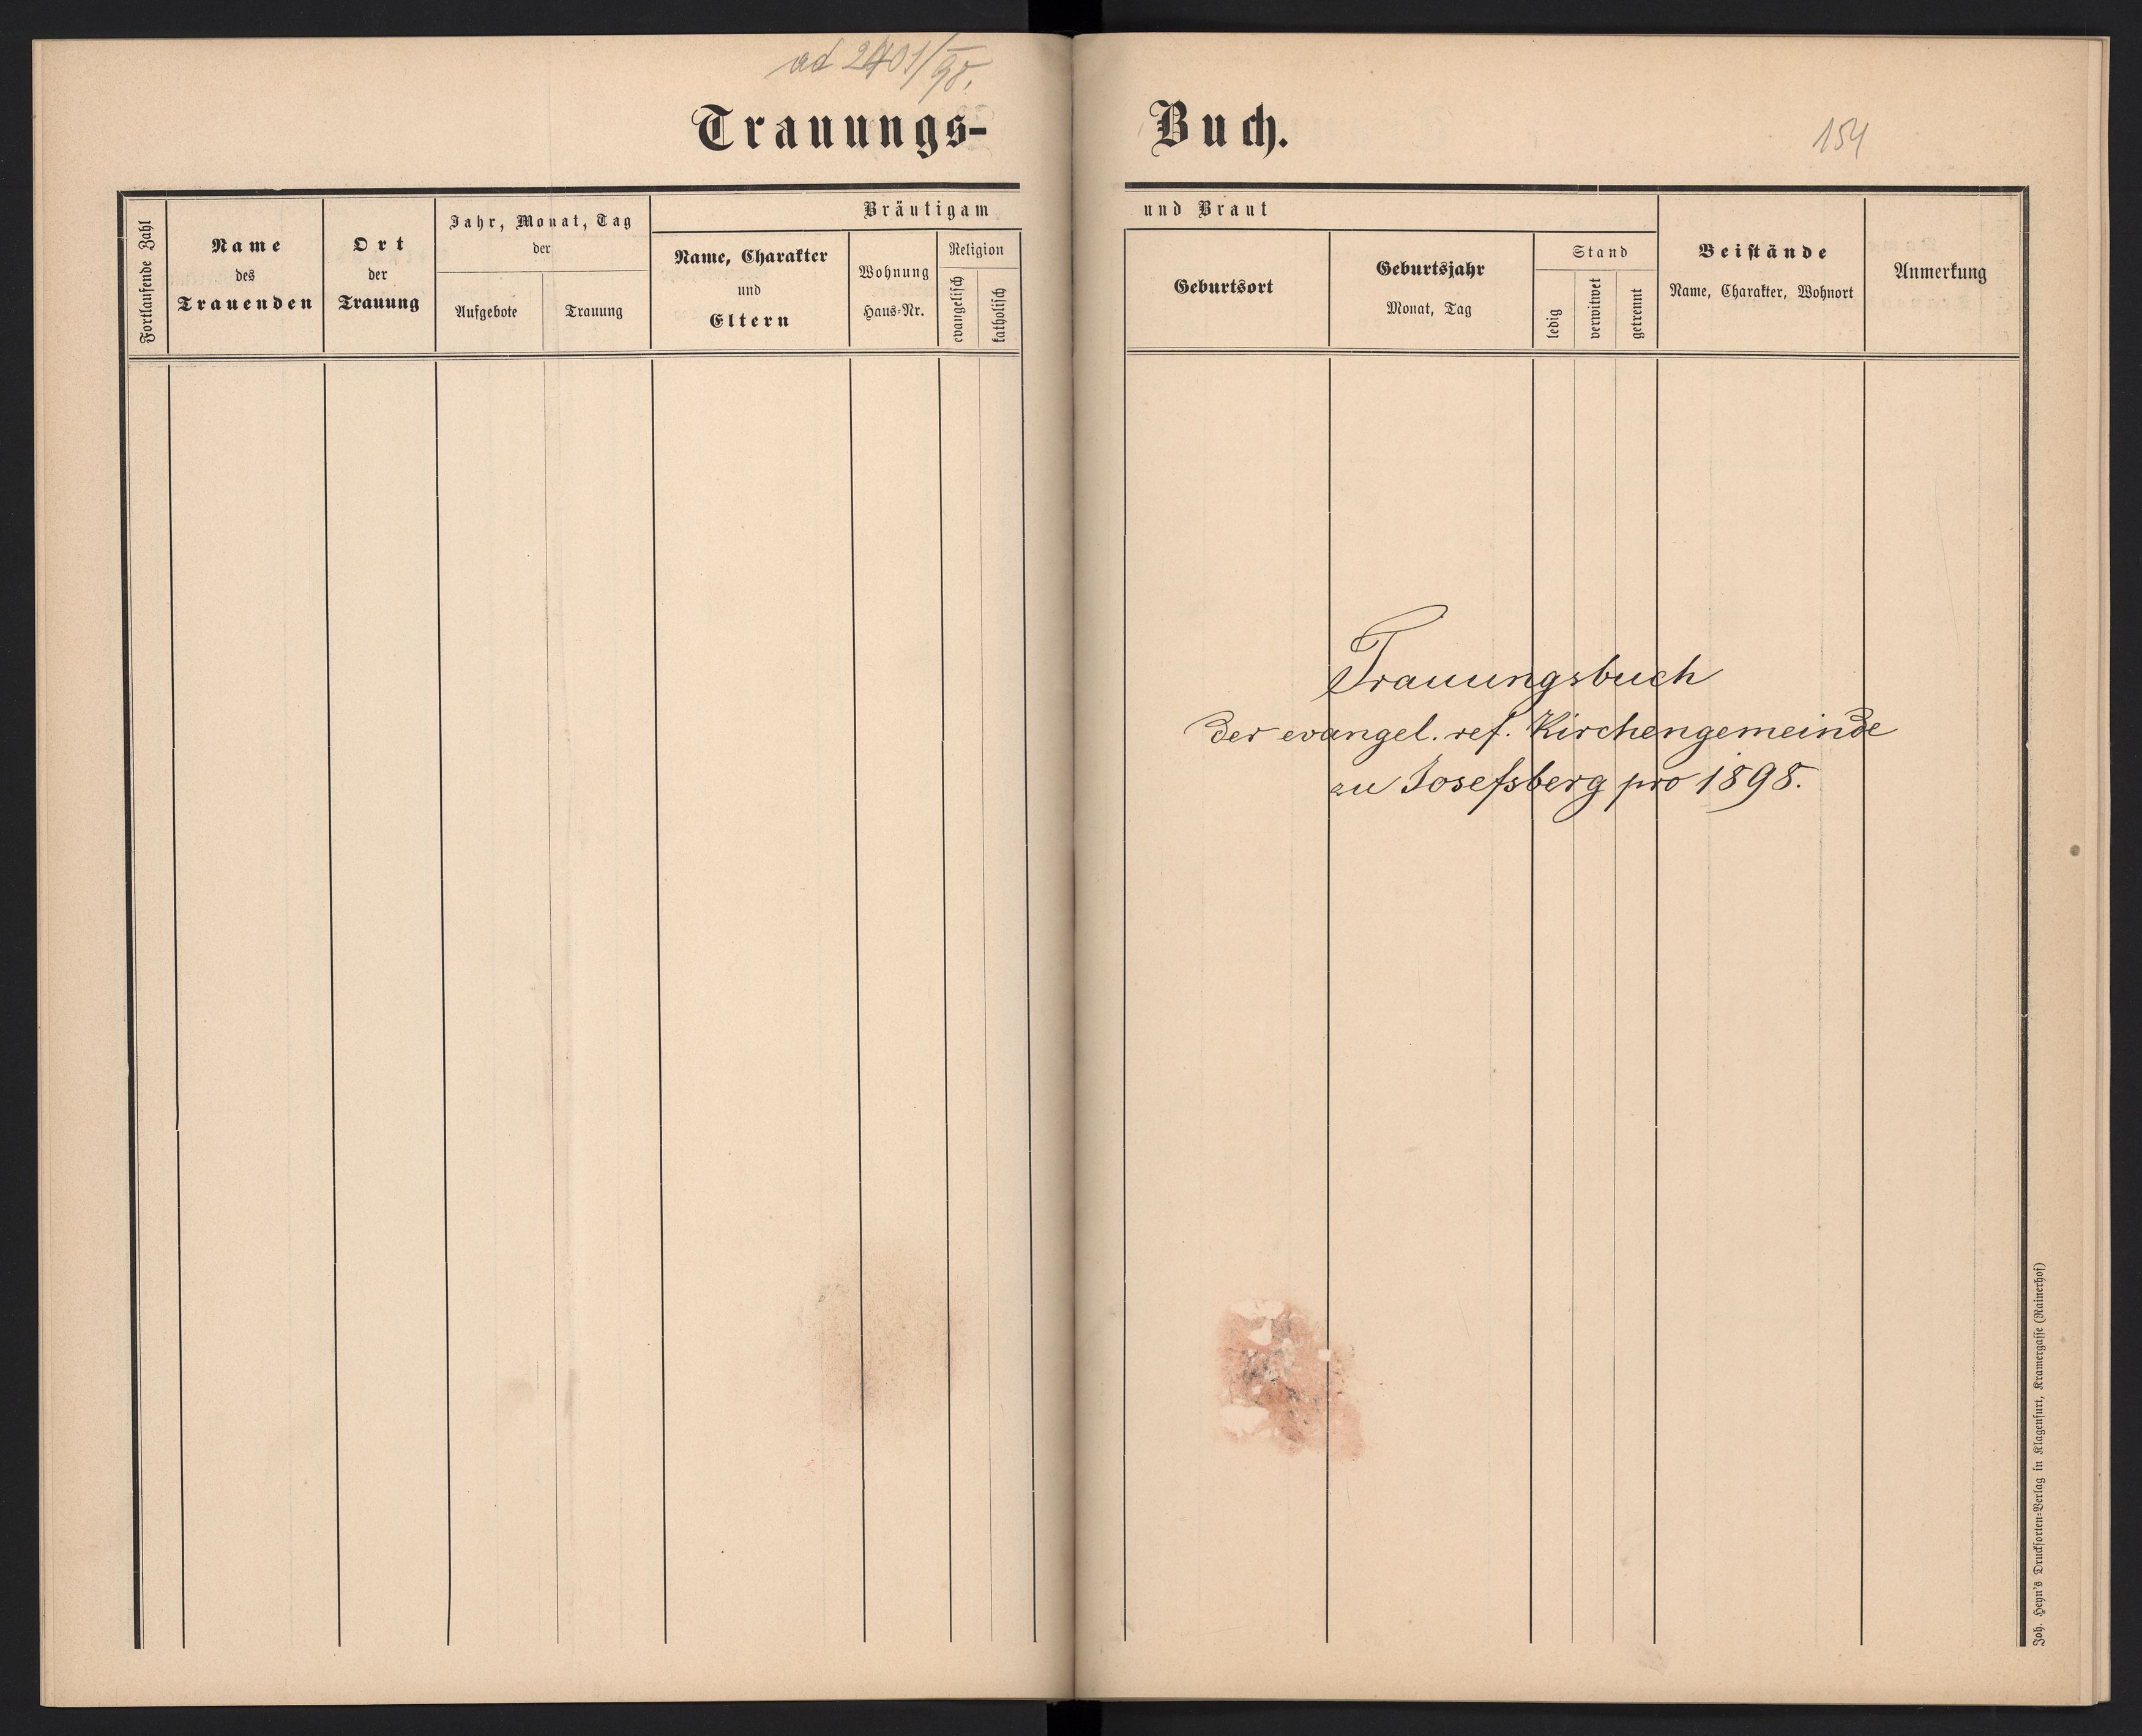 ad 2401/98.
Trauungs-
Fortlaufende Zahl
Name
des
Trauenden
Ort
der
Trauung
Jahr, Monat, Tag
der
Aufgebote
Trauung
Bräutigam
Name, Charakter
und
Eltern
Wohnung
Haus-Nr.
Religion
evangelisch
katholisch
Buch.
154
und Braut
Geburtsort
Geburtsjahr
Monat, Tag
Stand
ledig
verwitwet
getrennt
Beistände
Name, Charakter, Wohnort
Anmerkung
Trauungsbuch
der evangel. ref. Kirchengemeinde
zu Josefsberg pro 1898.
Joh. Heyn's Drucksorten-Verlag in Klagenfurt, Kramergasse (Rainerhof)